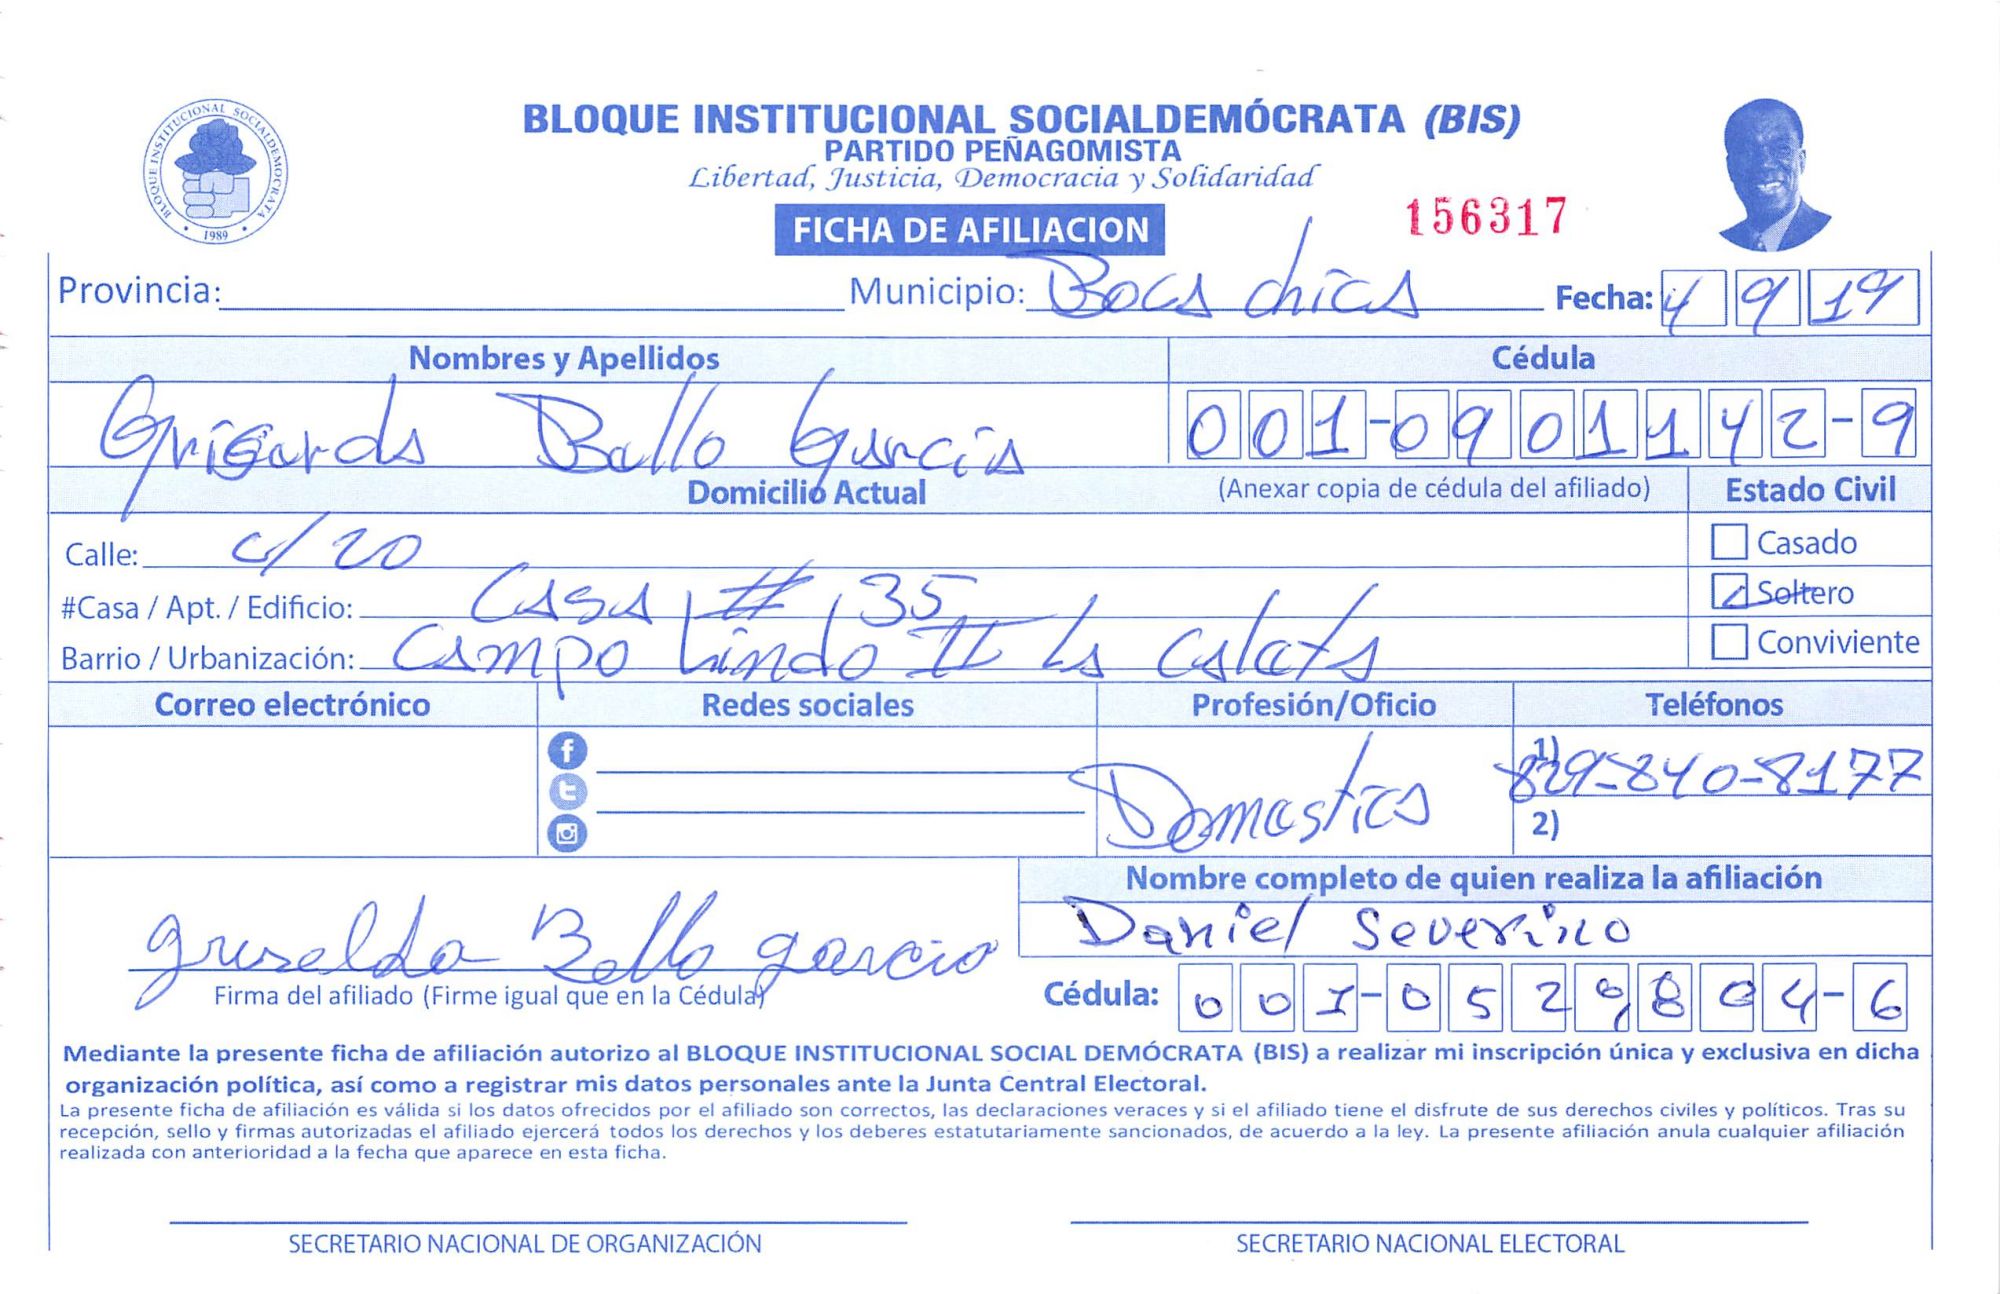 BLOQUE INSTITUCIONAL SOCIALDEMOCRATA
1989
BLOQUE INSTITUCIONAL SOCIALDEMÓCRATA (BIS)
PARTIDO PEÑAGOMISTA
Libertad, Justicia, Democracia y Solidaridad
FICHA DE AFILIACION
156317
Provincia: Municipio: Boca chica Fecha: 4 9 19
Nombres y Apellidos Cédula
Bello Garcia 001-0901142-9
Domicilio Actual (Anexar copia de cédula del afiliado) Estado Civil
Calle: c/20 Casado
#Casa / Apt. / Edificio: Casa # 35 Soltero
Barrio / Urbanización: Campo Lindo II La Caleta Conviviente
Correo electrónico Redes sociales Profesión/Oficio Teléfonos
Domestica 1) 829-840-8177
2)
Nombre completo de quien realiza la afiliación
Griselda Bello Garcia Daniel Severino
Firma del afiliado (Firme igual que en la Cédula) Cédula: 001-0529804-6
Mediante la presente ficha de afiliación autorizo al BLOQUE INSTITUCIONAL SOCIAL DEMÓCRATA (BIS) a realizar mi inscripción única y exclusiva en dicha
organización política, así como a registrar mis datos personales ante la Junta Central Electoral.
La presente ficha de afiliación es válida si los datos ofrecidos por el afiliado son correctos, las declaraciones veraces y si el afiliado tiene el disfrute de sus derechos civiles y políticos. Tras su
recepción, sello y firmas autorizadas el afiliado ejercerá todos los derechos y los deberes estatutariamente sancionados, de acuerdo a la ley. La presente afiliación anula cualquier afiliación
realizada con anterioridad a la fecha que aparece en esta ficha.
SECRETARIO NACIONAL DE ORGANIZACIÓN SECRETARIO NACIONAL ELECTORAL